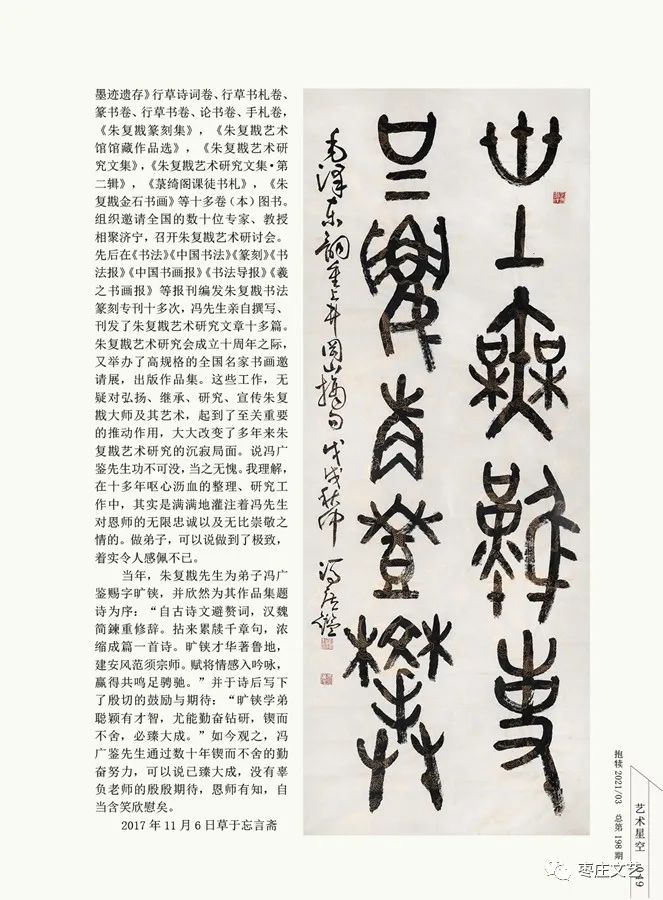 墨迹遗存》行草诗词卷、行草书札卷、
篆书卷、行草书卷、论书卷、手札卷，
《朱复戡篆刻集》，《朱复戡艺术
馆馆藏作品选》，《朱复戡艺术研
究文集》，《朱复戡艺术研究文集·第
二辑》，《菉绮阁课徒书札》，《朱
复戡金石书画》等十多卷（本）图书。
组织邀请全国的数十位专家、教授
相聚济宁，召开朱复戡艺术研讨会。
先后在《书法》《中国书法》《篆刻》《书
法报》《中国书画报》《书法导报》《羲
之书画报》等报刊编发朱复戡书法
篆刻专刊十多次，冯先生亲自撰写、
刊发了朱复戡艺术研究文章十多篇。
朱复戡艺术研究会成立十周年之际，
又举办了高规格的全国名家书画邀
请展，出版作品集。这些工作，无
疑对弘扬、继承、研究、宣传朱复
戡大师及其艺术，起到了至关重要
的推动作用，大大改变了多年来朱
复戡艺术研究的沉寂局面。说冯广
鉴先生功不可没，当之无愧。我理解，
在十多年呕心沥血的整理、研究工
作中，其实是满满地灌注着冯先生
对恩师的无限忠诚以及无比崇敬之
情的。做弟子，可以说做到了极致，
着实令人感佩不已。
当年，朱复戡先生为弟子冯广
鉴赐字旷铗，并欣然为其作品集题
诗为序：“自古诗文避赘词，汉魏
简鍊重修辞。拈来累牍千章句，浓
缩成篇一首诗。旷铗才华著鲁地，
建安风范须宗师。赋将情感入吟咏，
赢得共鸣足骋驰。”并于诗后写下
了殷切的鼓励与期待：“旷铗学弟
聪颖有才智，尤能勤奋钻研，锲而
不舍，必臻大成。”如今观之，冯
广鉴先生通过数十年锲而不舍的勤
奋努力，可以说已臻大成，没有辜
负老师的殷殷期待，恩师有知，自
当含笑欣慰矣。
2017年11月6日草于忘言斋
世上無難事
只要肯登攀
毛泽东词重上井冈山摘句 戊戌秋仲 冯广鉴
抱犊 2021/03 总第198期
艺术星空
049
枣庄文艺